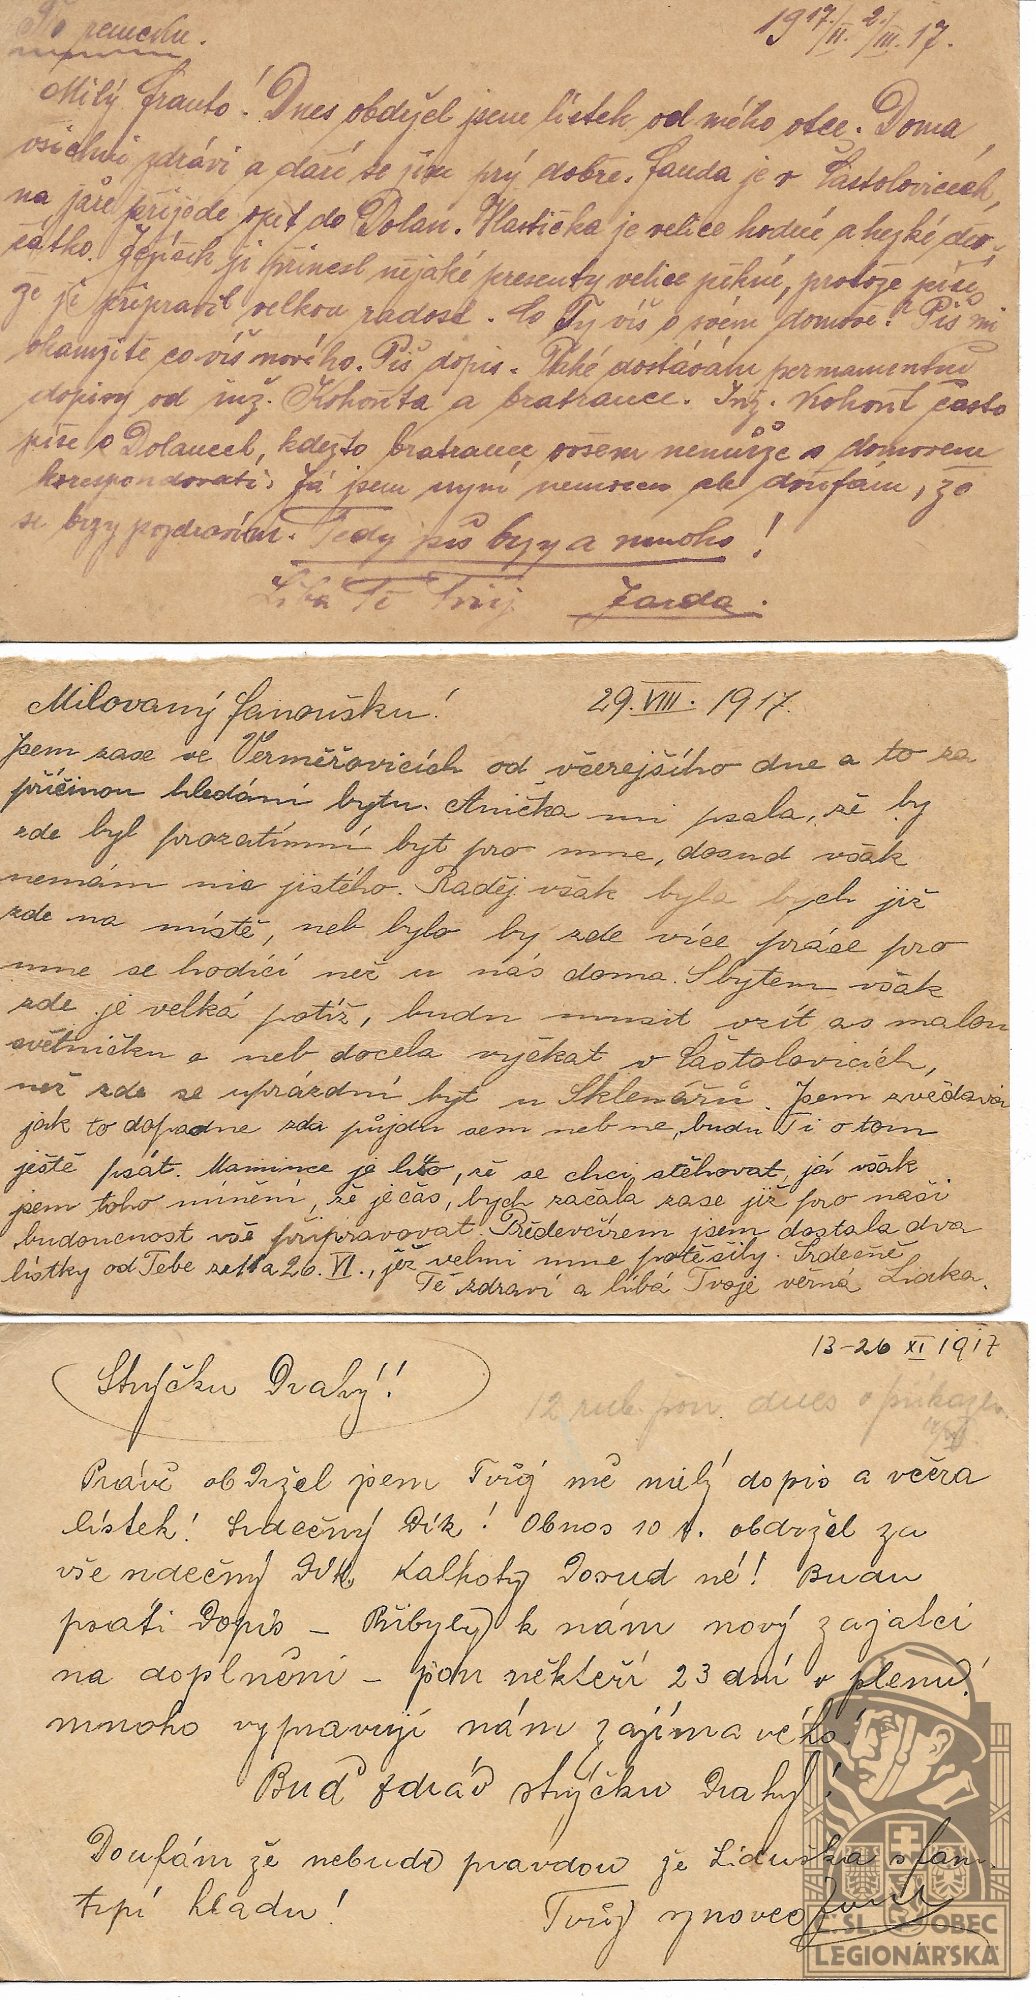 1917/II. 2./III. 17.
Milý Franto! Dnes obdržel jsem lístek od mého otce. Doma
všichni zdrávi a daří se jim prý dobře. Fanda je v Častolovicích,
na jaře přijede opět do Dolan. Vlastička je velice hodné a hezké děv-
čátko. Ježíšek jí přinesl nějaké presenty velice pěkné, protože píší,
že jí připravil velkou radost. Co Ty víš o svém domově? Piš mi
okamžitě co víš nového. Piš dopis. Také dostávám permanentně
dopisy od inž. Kohouta a bratrance. Inž. Kohout často
píše o Dolancech, kdežto bratranec ovšem nemůže s domovem
korespondovati. Já jsem nyní nemocen ale doufám, že
se brzy pozdravím. Tedy piš brzy a mnoho!
Líbá Tě Tvůj Jarda.
Milovaný Fanoušku! 29. VIII. 1917.
Jsem zase ve Verměřovicích od včerejšího dne a to za
příčinou hledání bytu. Anička mi psala, že by
zde byl prozatímní byt pro mne, dosud však
nemám nic jistého. Raděj však byla bych již
zde na místě, neb bylo by zde více práce pro
mne se hodící než u nás doma. S bytem však
zde je velká potíž, budu muset vzít as malou
světničku a neb docela vyčkat v Častolovicích,
než zde se uprázdní byt u Sklenářů. Jsem zvědavá
jak to dopadne zda půjdu sem neb ne, budu Ti o tom
ještě psát. Mamince je líto, že se chci stěhovat, já však
jsem toho mínění, že je čas, bych začala zase již pro naši
budoucnost vše připravovat. Předevčírem jsem dostala dva
lístky od Tebe ze 11 a 26. VI., jež velmi mne potěšily. Srdečně
Tě zdraví a líbá Tvoje věrná Lidka.
13-26 XI 1917
Strýčku Drahý!!
12 rub. pou. dnes
Právě obdržel jsem Tvůj mě milý dopis a včera
lístek! Srdečný Dík! Obnos 10 r. obdržel za
vše srdečný Dík, Kalhoty Dosud né! Budu
psáti Dopis – Přibyly k nám nový zajatci
na doplnění – jsou někteří 23 dní v plenu!
mnoho vypravují nám zajímavého!
Buď zdráv strýčku Drahý!
Doufám že nebude pravdou že Liduška
trpí hladu! Tvůj synovec
Č. SL. OBEC
LEGIONÁŘSKÁ